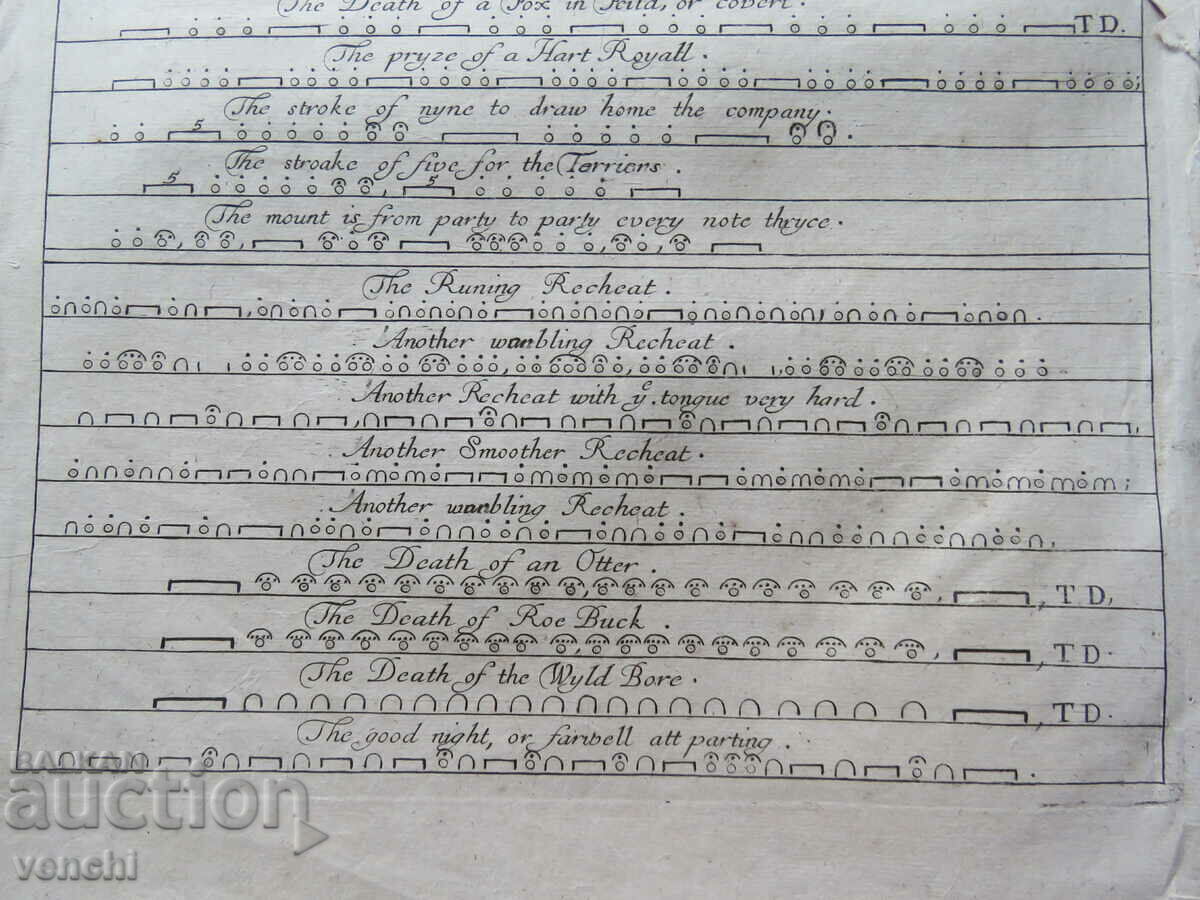 The Death of a Fox in Feild, or covert.
TD.
The pryze of a Hart Royall.
The stroke of nyne to draw home the company.
5
The stroake of five for the Terriers.
5 5
The mount is from party to party every note thryce.
The Runing Recheat.
Another warbling Recheat.
Another Recheat with yᵉ. tongue very hard.
Another Smoother Recheat.
Another warbling Recheat.
The Death of an Otter.
, TD,
The Death of Roe Buck.
, TD.
The Death of the Wyld Bore.
, TD.
The good night, or farwell att parting.
BALKAN
auction
venchi